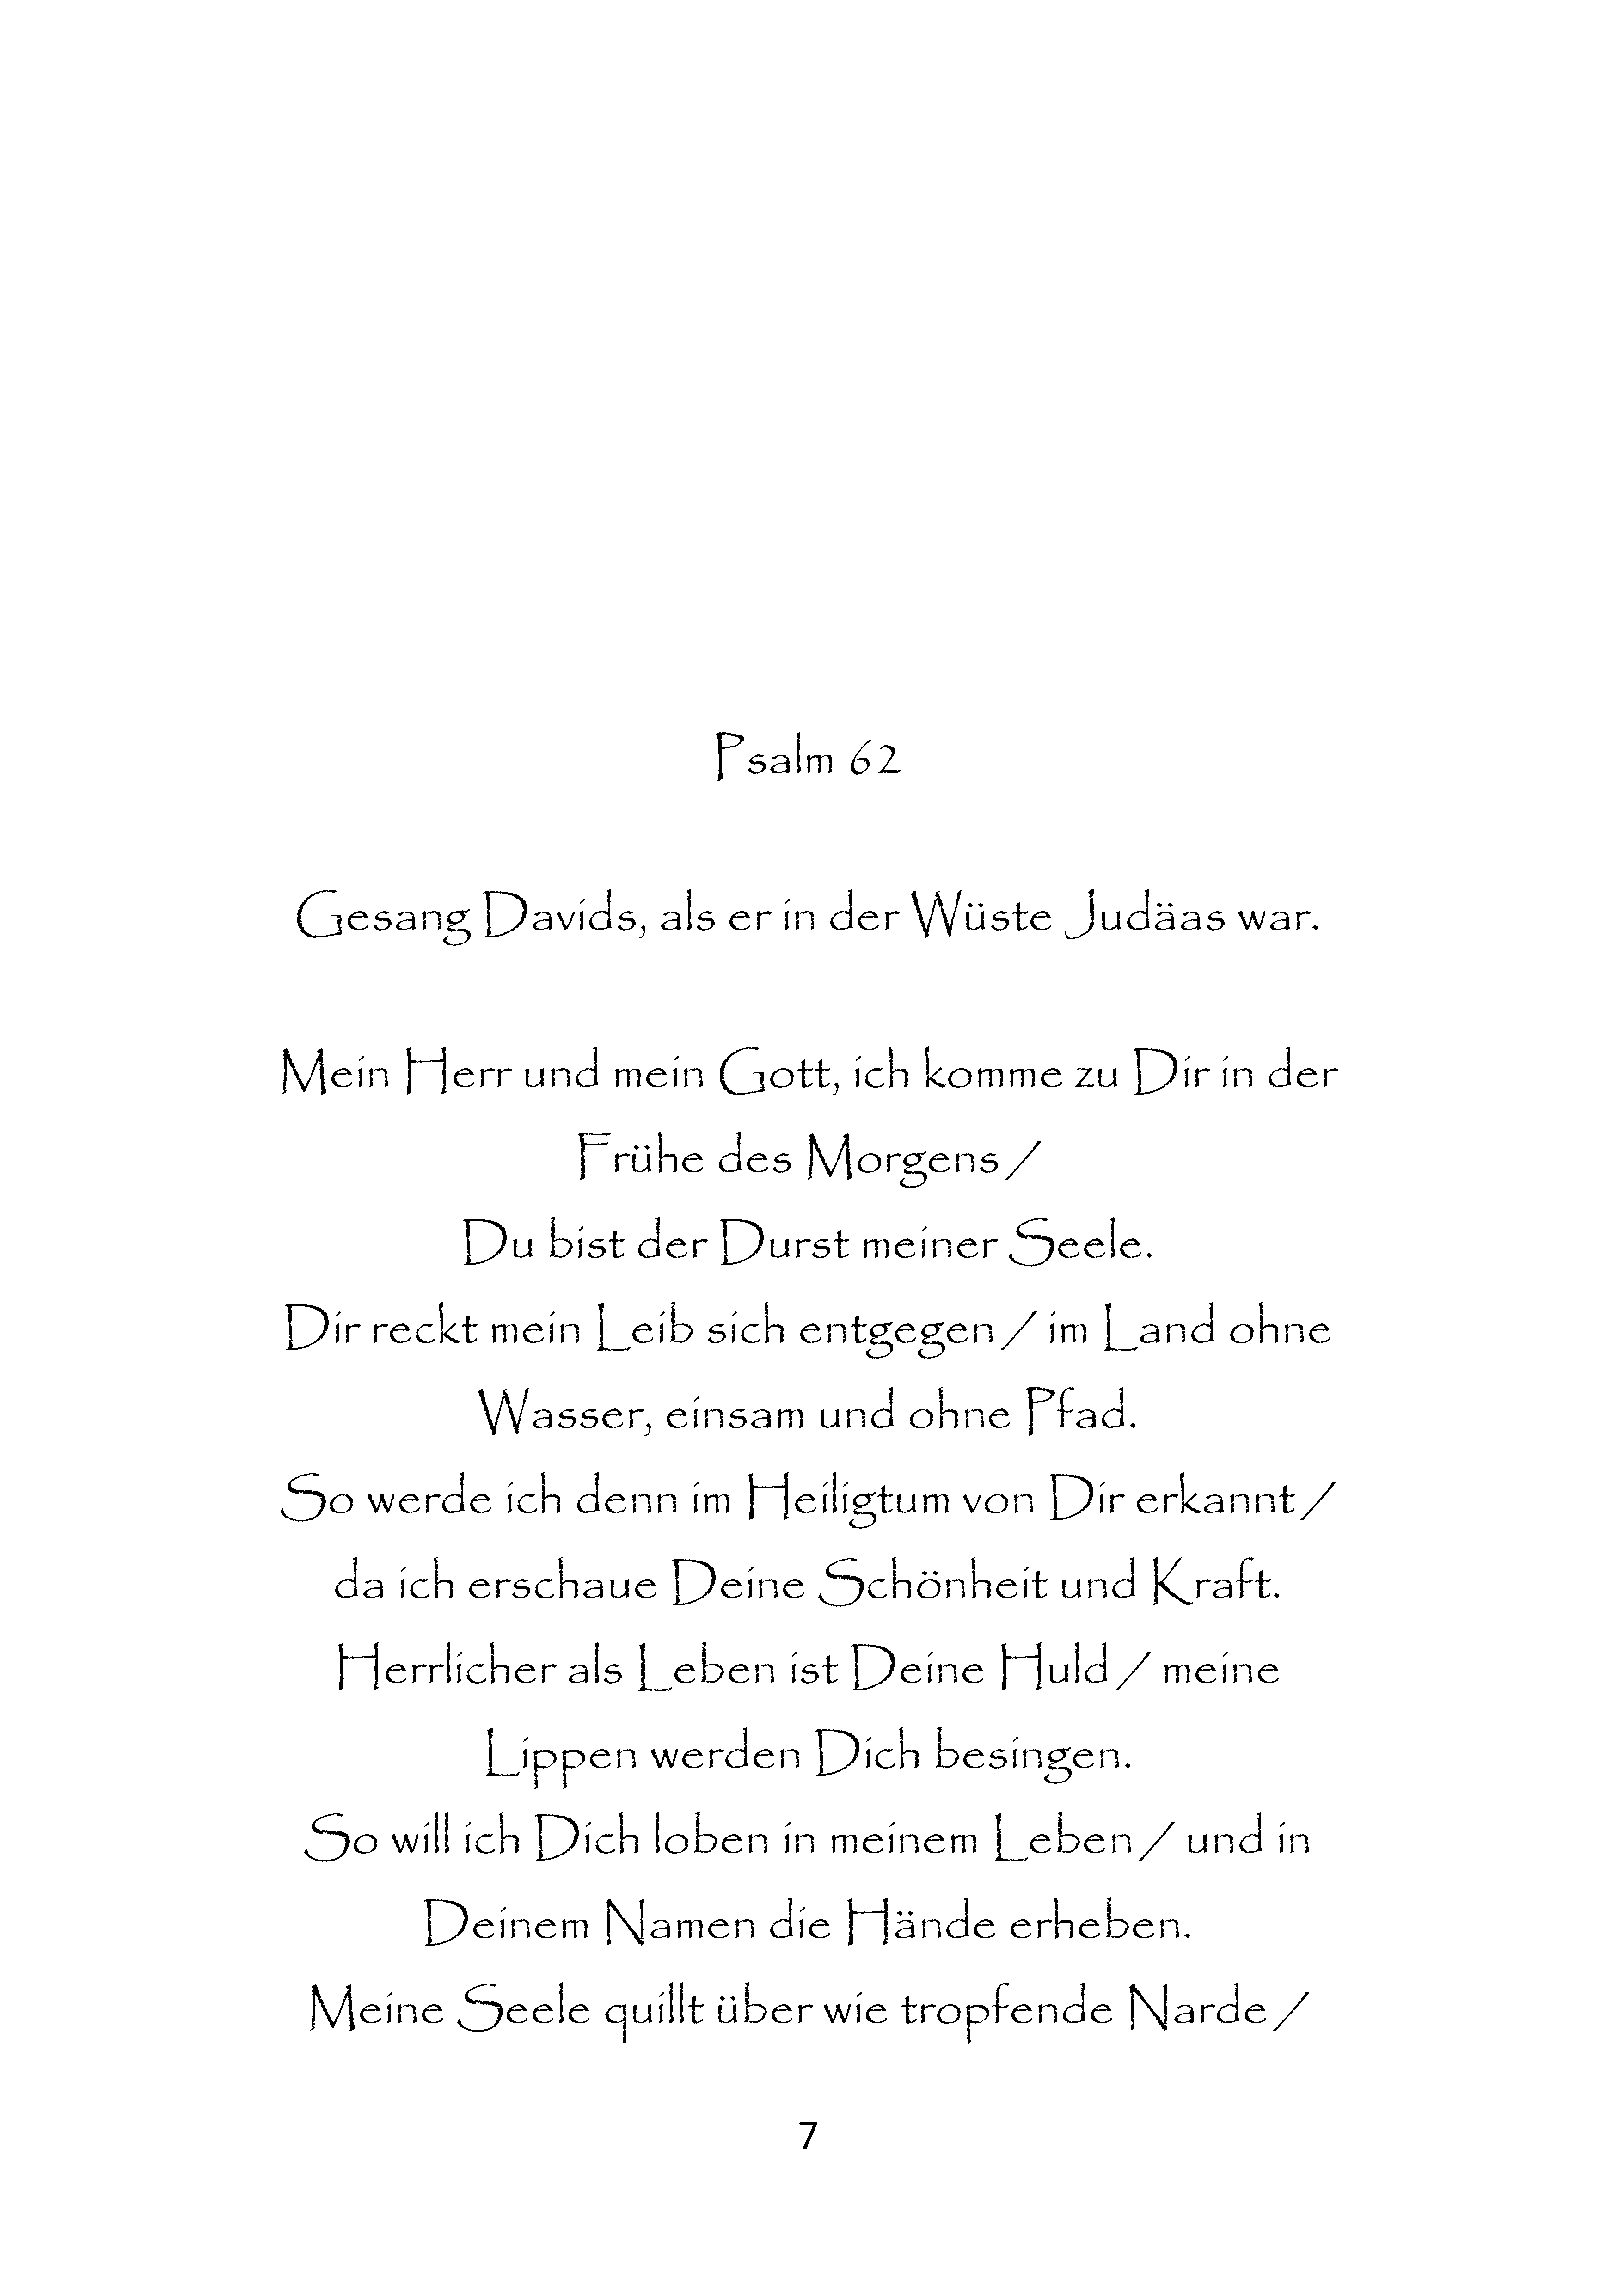 Psalm 62
Gesang Davids, als er in der Wüste Judäas war.
Mein Herr und mein Gott, ich komme zu Dir in der
Frühe des Morgens /
Du bist der Durst meiner Seele.
Dir reckt mein Leib sich entgegen / im Land ohne
Wasser, einsam und ohne Pfad.
So werde ich denn im Heiligtum von Dir erkannt /
da ich erschaue Deine Schönheit und Kraft.
Herrlicher als Leben ist Deine Huld / meine
Lippen werden Dich besingen.
So will ich Dich loben in meinem Leben / und in
Deinem Namen die Hände erheben.
Meine Seele quillt über wie tropfende Narde /
7